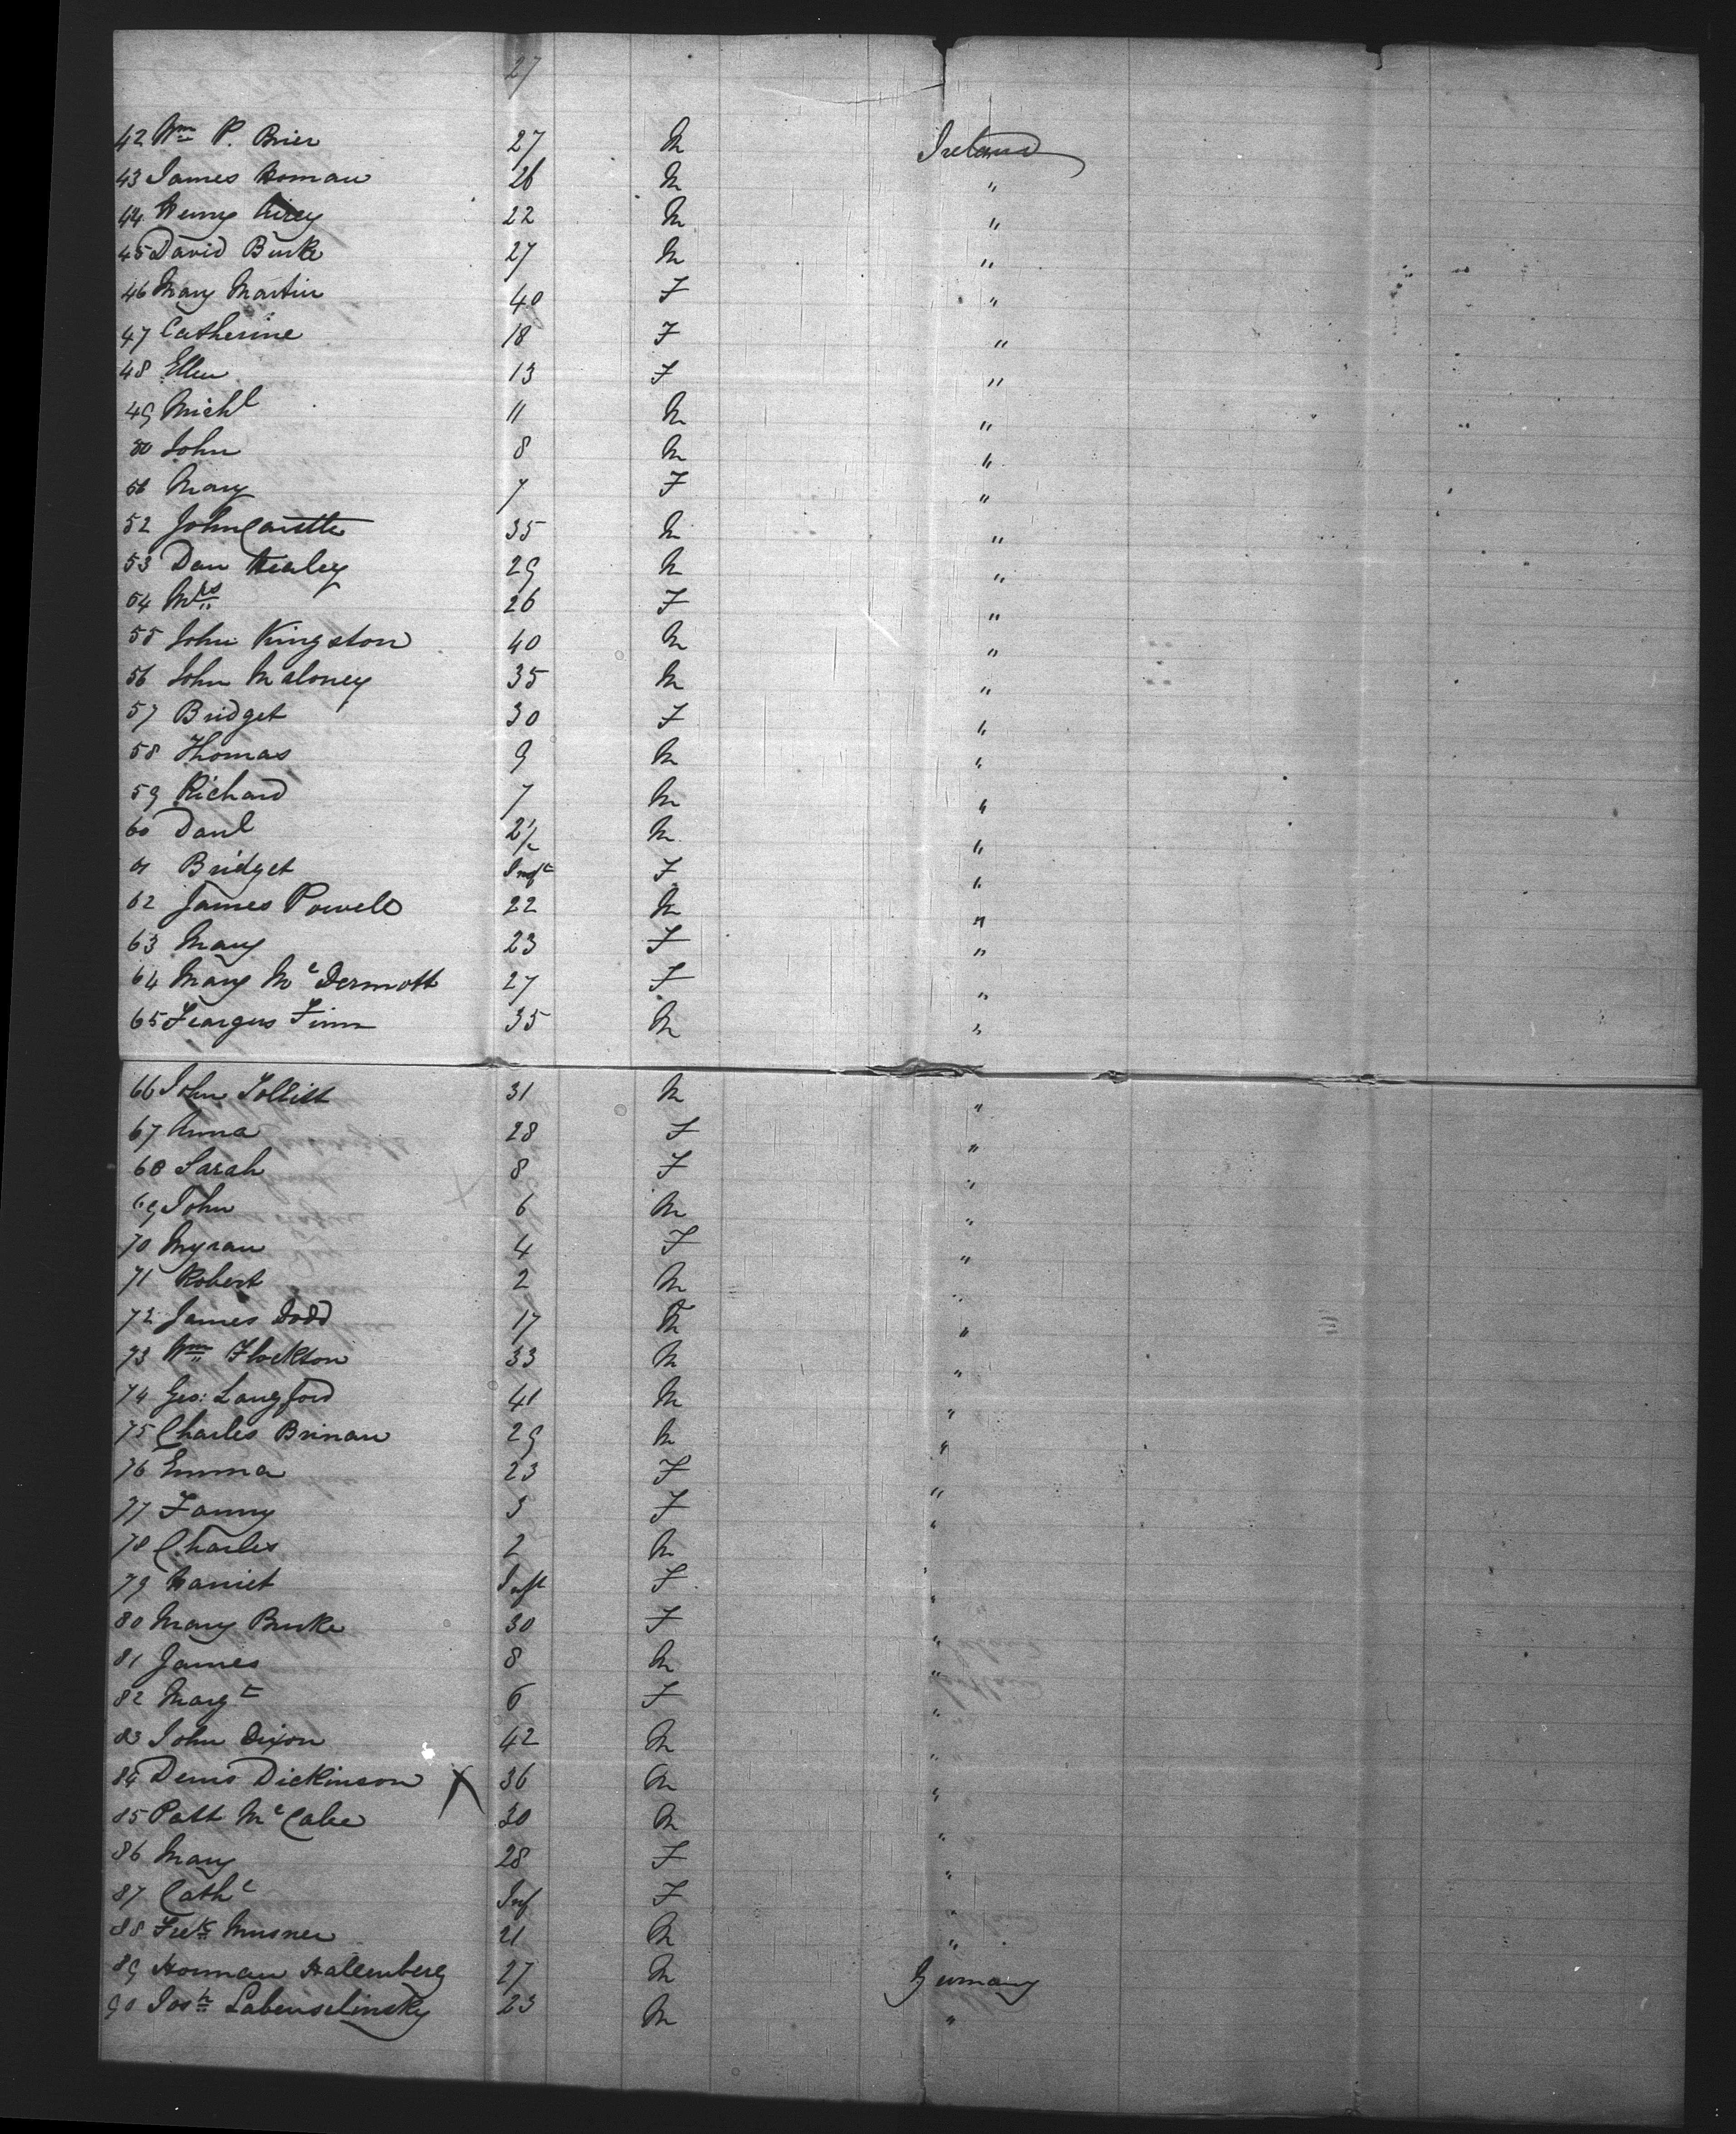 27
42 Wm P. Brier 27 M Ireland
43 James Homan 26 M "
44 Henry Airey 22 M "
45 David Burke 27 M "
46 Mary Martin 40 F "
47 Catherine 18 F "
48 Ellen 13 F "
49 Michl 11 M "
50 John 8 M "
51 Mary 7 F "
52 John 35 M "
53 Dan Healey 29 M "
54 Mrs " 26 F "
55 John Kingston 40 M "
56 John Maloney 35 M "
57 Bridget 30 F "
58 Thomas 9 M "
59 Richard 7 M "
60 Danl 2½ M "
61 Bridget Inft F "
62 James Powell 22 M "
63 Mary 23 F "
64 Mary Mc Dermott 27 F "
65 Feargus Finn 35 M "
66 John Tollitt 31 M "
67 Anna 28 F "
68 Sarah 8 F "
69 John 6 M "
70 Myran 4 F "
71 Robert 2 M "
72 James Dodd 17 M "
73 Wm Flockton 33 M "
74 Geo: Langford 41 M "
75 Charles Brinan 29 M "
76 Emma 23 F "
77 Fanny 5 F "
78 Charles 2 M "
79 Harriet Inft F "
80 Mary Burke 30 F "
81 James 8 M "
82 Margt 6 F "
83 John Dixon 42 M "
84 Denis Dickinson X 36 M "
85 Patt Mc Cabe 30 M "
86 Mary 28 F "
87 Cathe Inf F "
88 Fredk Musner 21 M "
89 Herman Hallenberg 27 M Germany
90 Josh Labenselinsky 23 M "